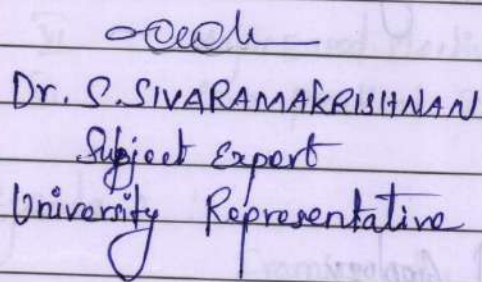 Dr. S. SIVARAMAKRISHNAN
Subject Expert
University Representative